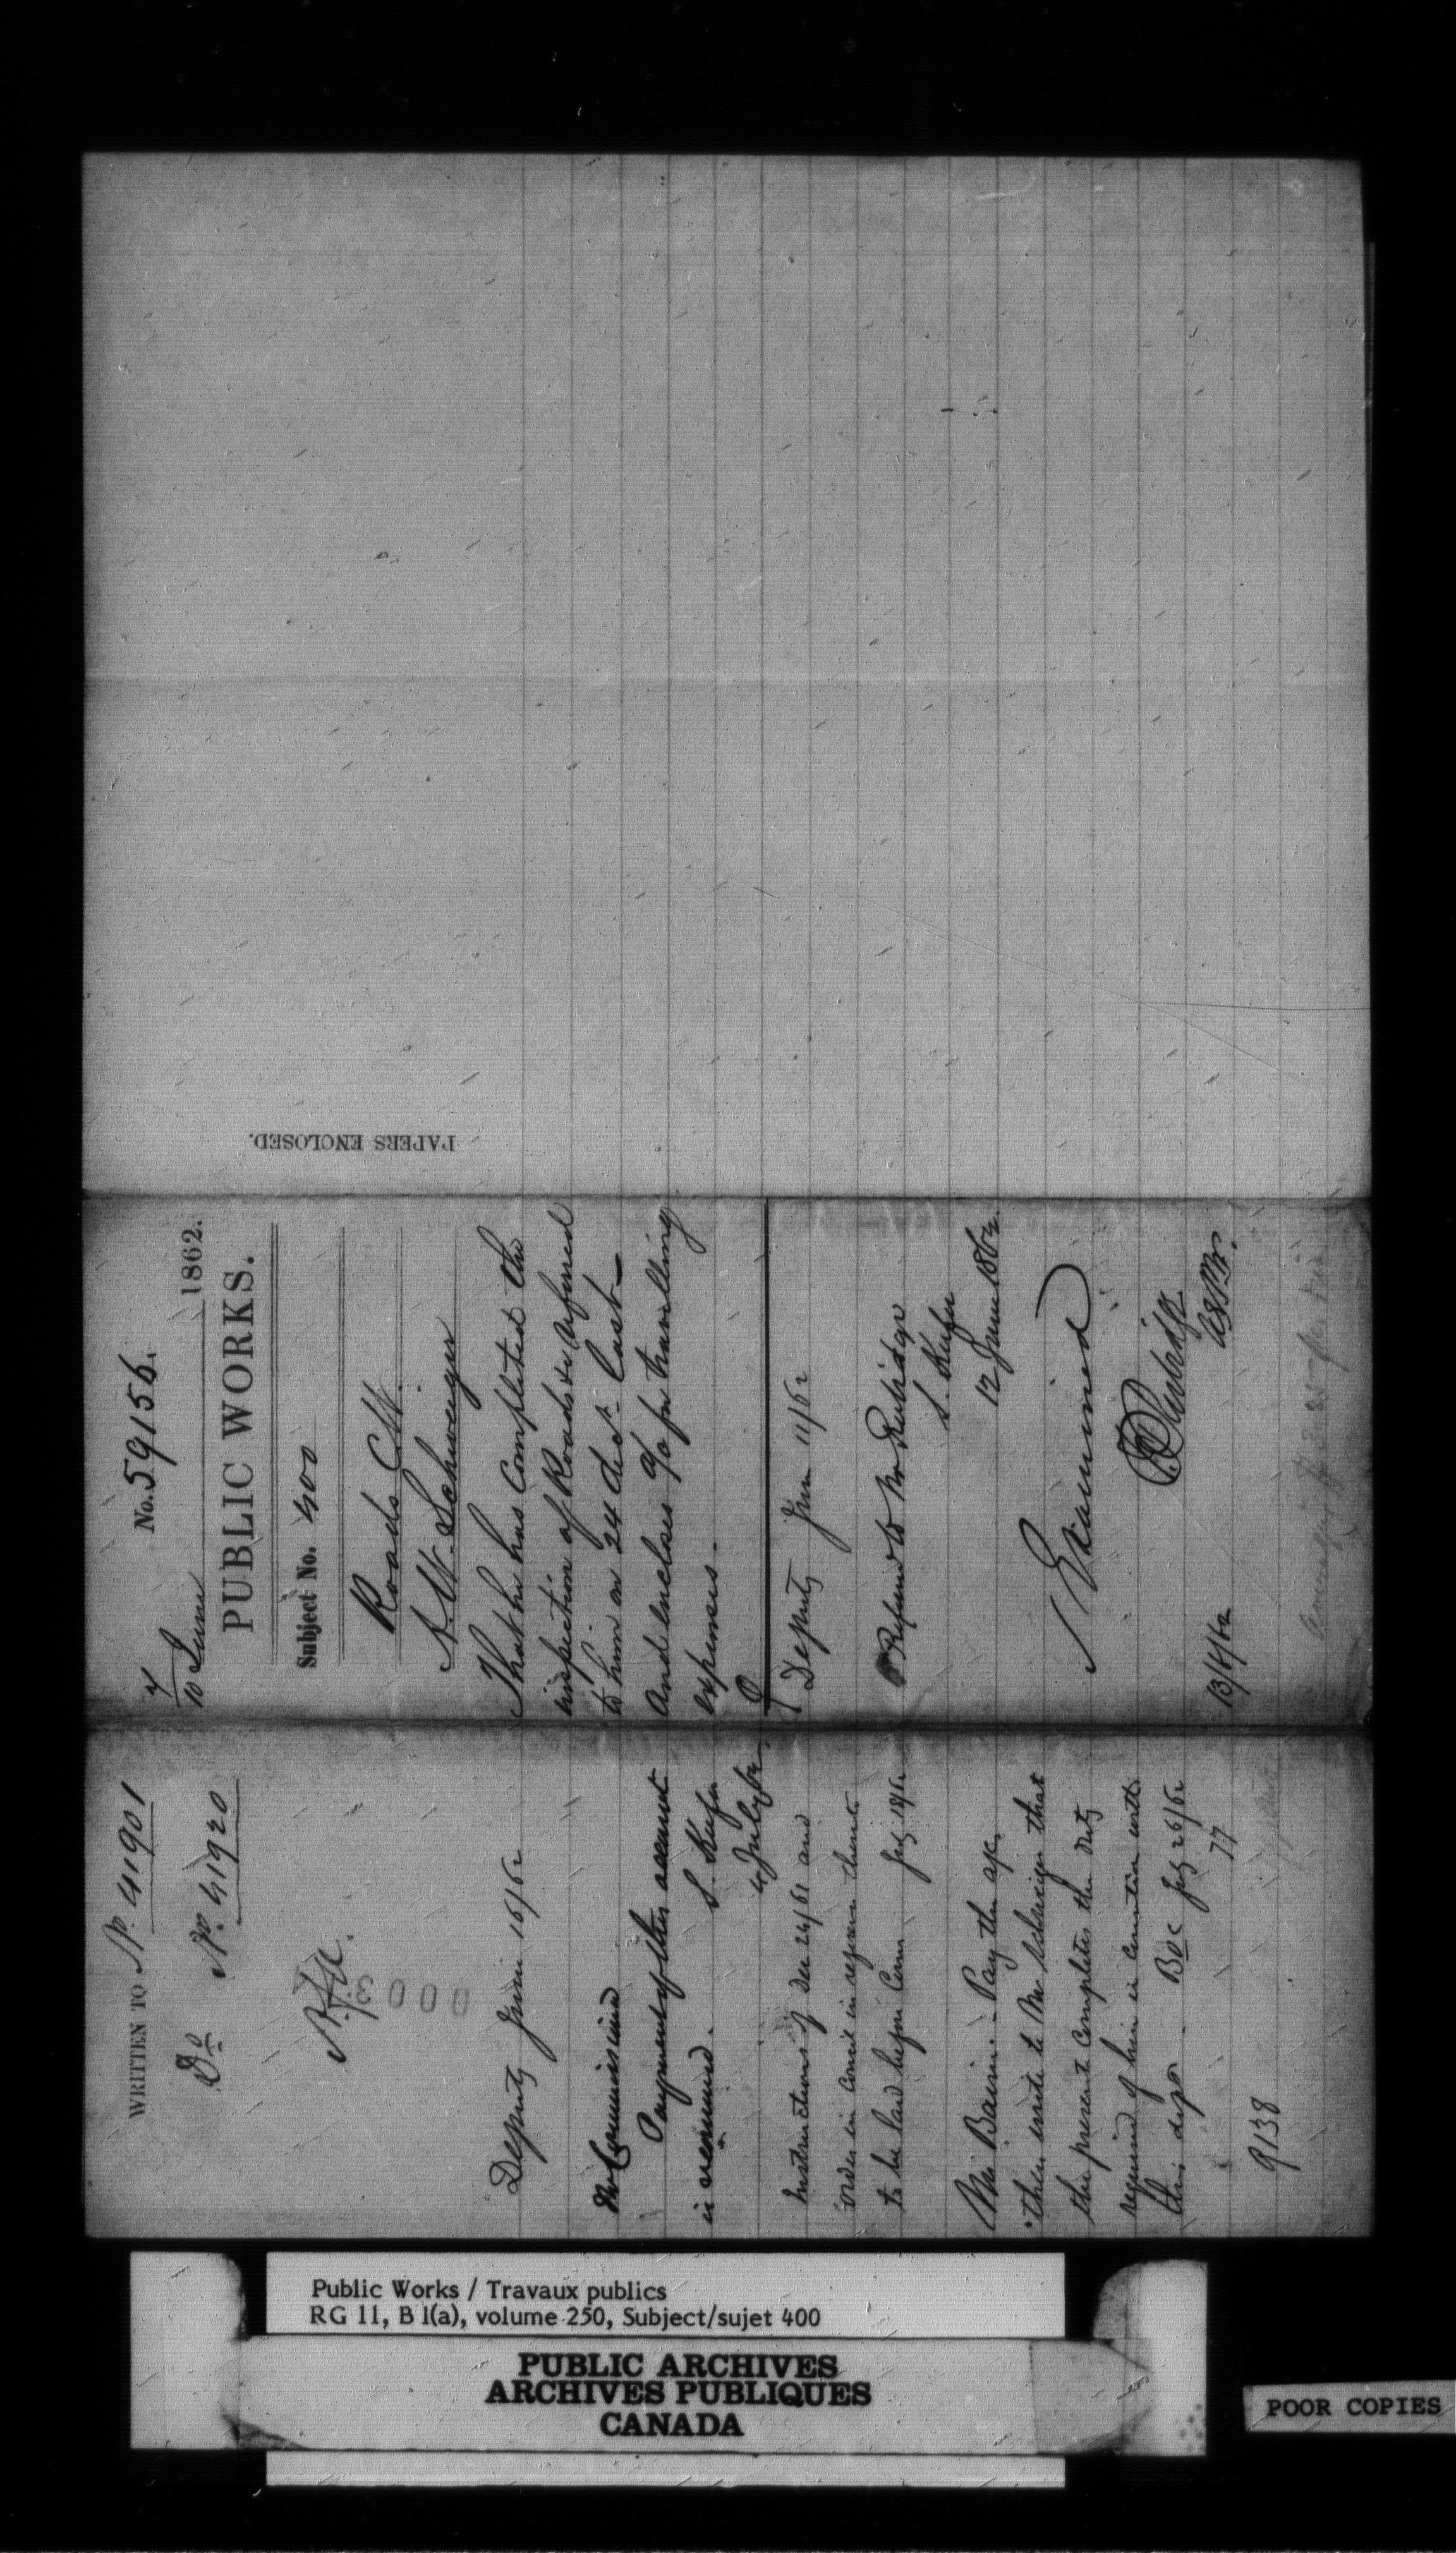 WRITTEN TO No. 41901
Do No. 41920
3000
Deputy June 16/62
Mr Commissioner
Payment of this account
is recommd.
S. Keefer
4 July 62
Instructions of Dec 24/61 and
Order in Council in reference thereto
to be laid before Comr July 18/62
Mr Baine. Pay the a/c,
then write to Mr Schwieger that
the present completes the duty
required of him in connection with
this dept.
July 26/62
77
9138
4
10 June
No. 59156.
1862.
PUBLIC WORKS.
Subject No. 400
Roads C.W.
A. W. Schwieger
That he has completed the
inspection of Roads &c referred
to him on 24 Decr last—
And encloses a/c for travelling
expenses.
Deputy June 11/62
Referred to Mr Rubidge
S. Keefer
12 June 1862
Examined
F P Rubidge
13/6/62
PAPERS ENCLOSED.
Public Works / Travaux publics
RG 11, B 1(a), volume 250, Subject/sujet 400
PUBLIC ARCHIVES
ARCHIVES PUBLIQUES
CANADA
POOR COPIES